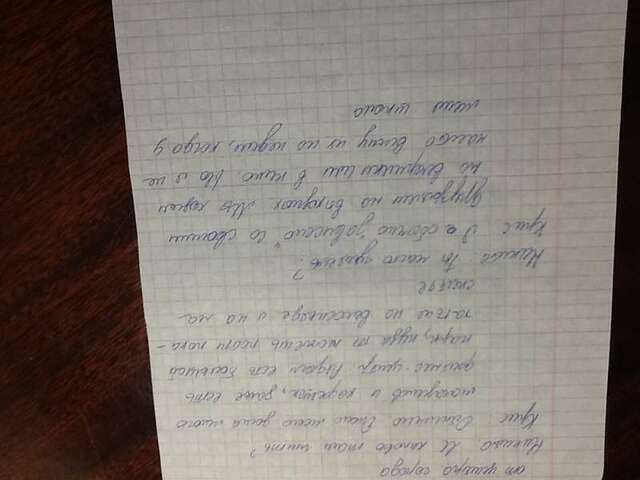 от центра города
Никита И каково там жить?
Крис Отлично. Около моего дома много
магазинов и кафешек, даже есть
фитнес-центр. Рядом есть большой
парк, куда ты можешь пойти пока-
таться на велосипеде и на
скейте
Никита. Ты часто гуляешь?
Крис Я обычно "зависаю" со своими
друзьями на выходных. Мы ходим
на вечеринки или в кино. Но я не
часто вижу их по неделе, когда у
меня школа